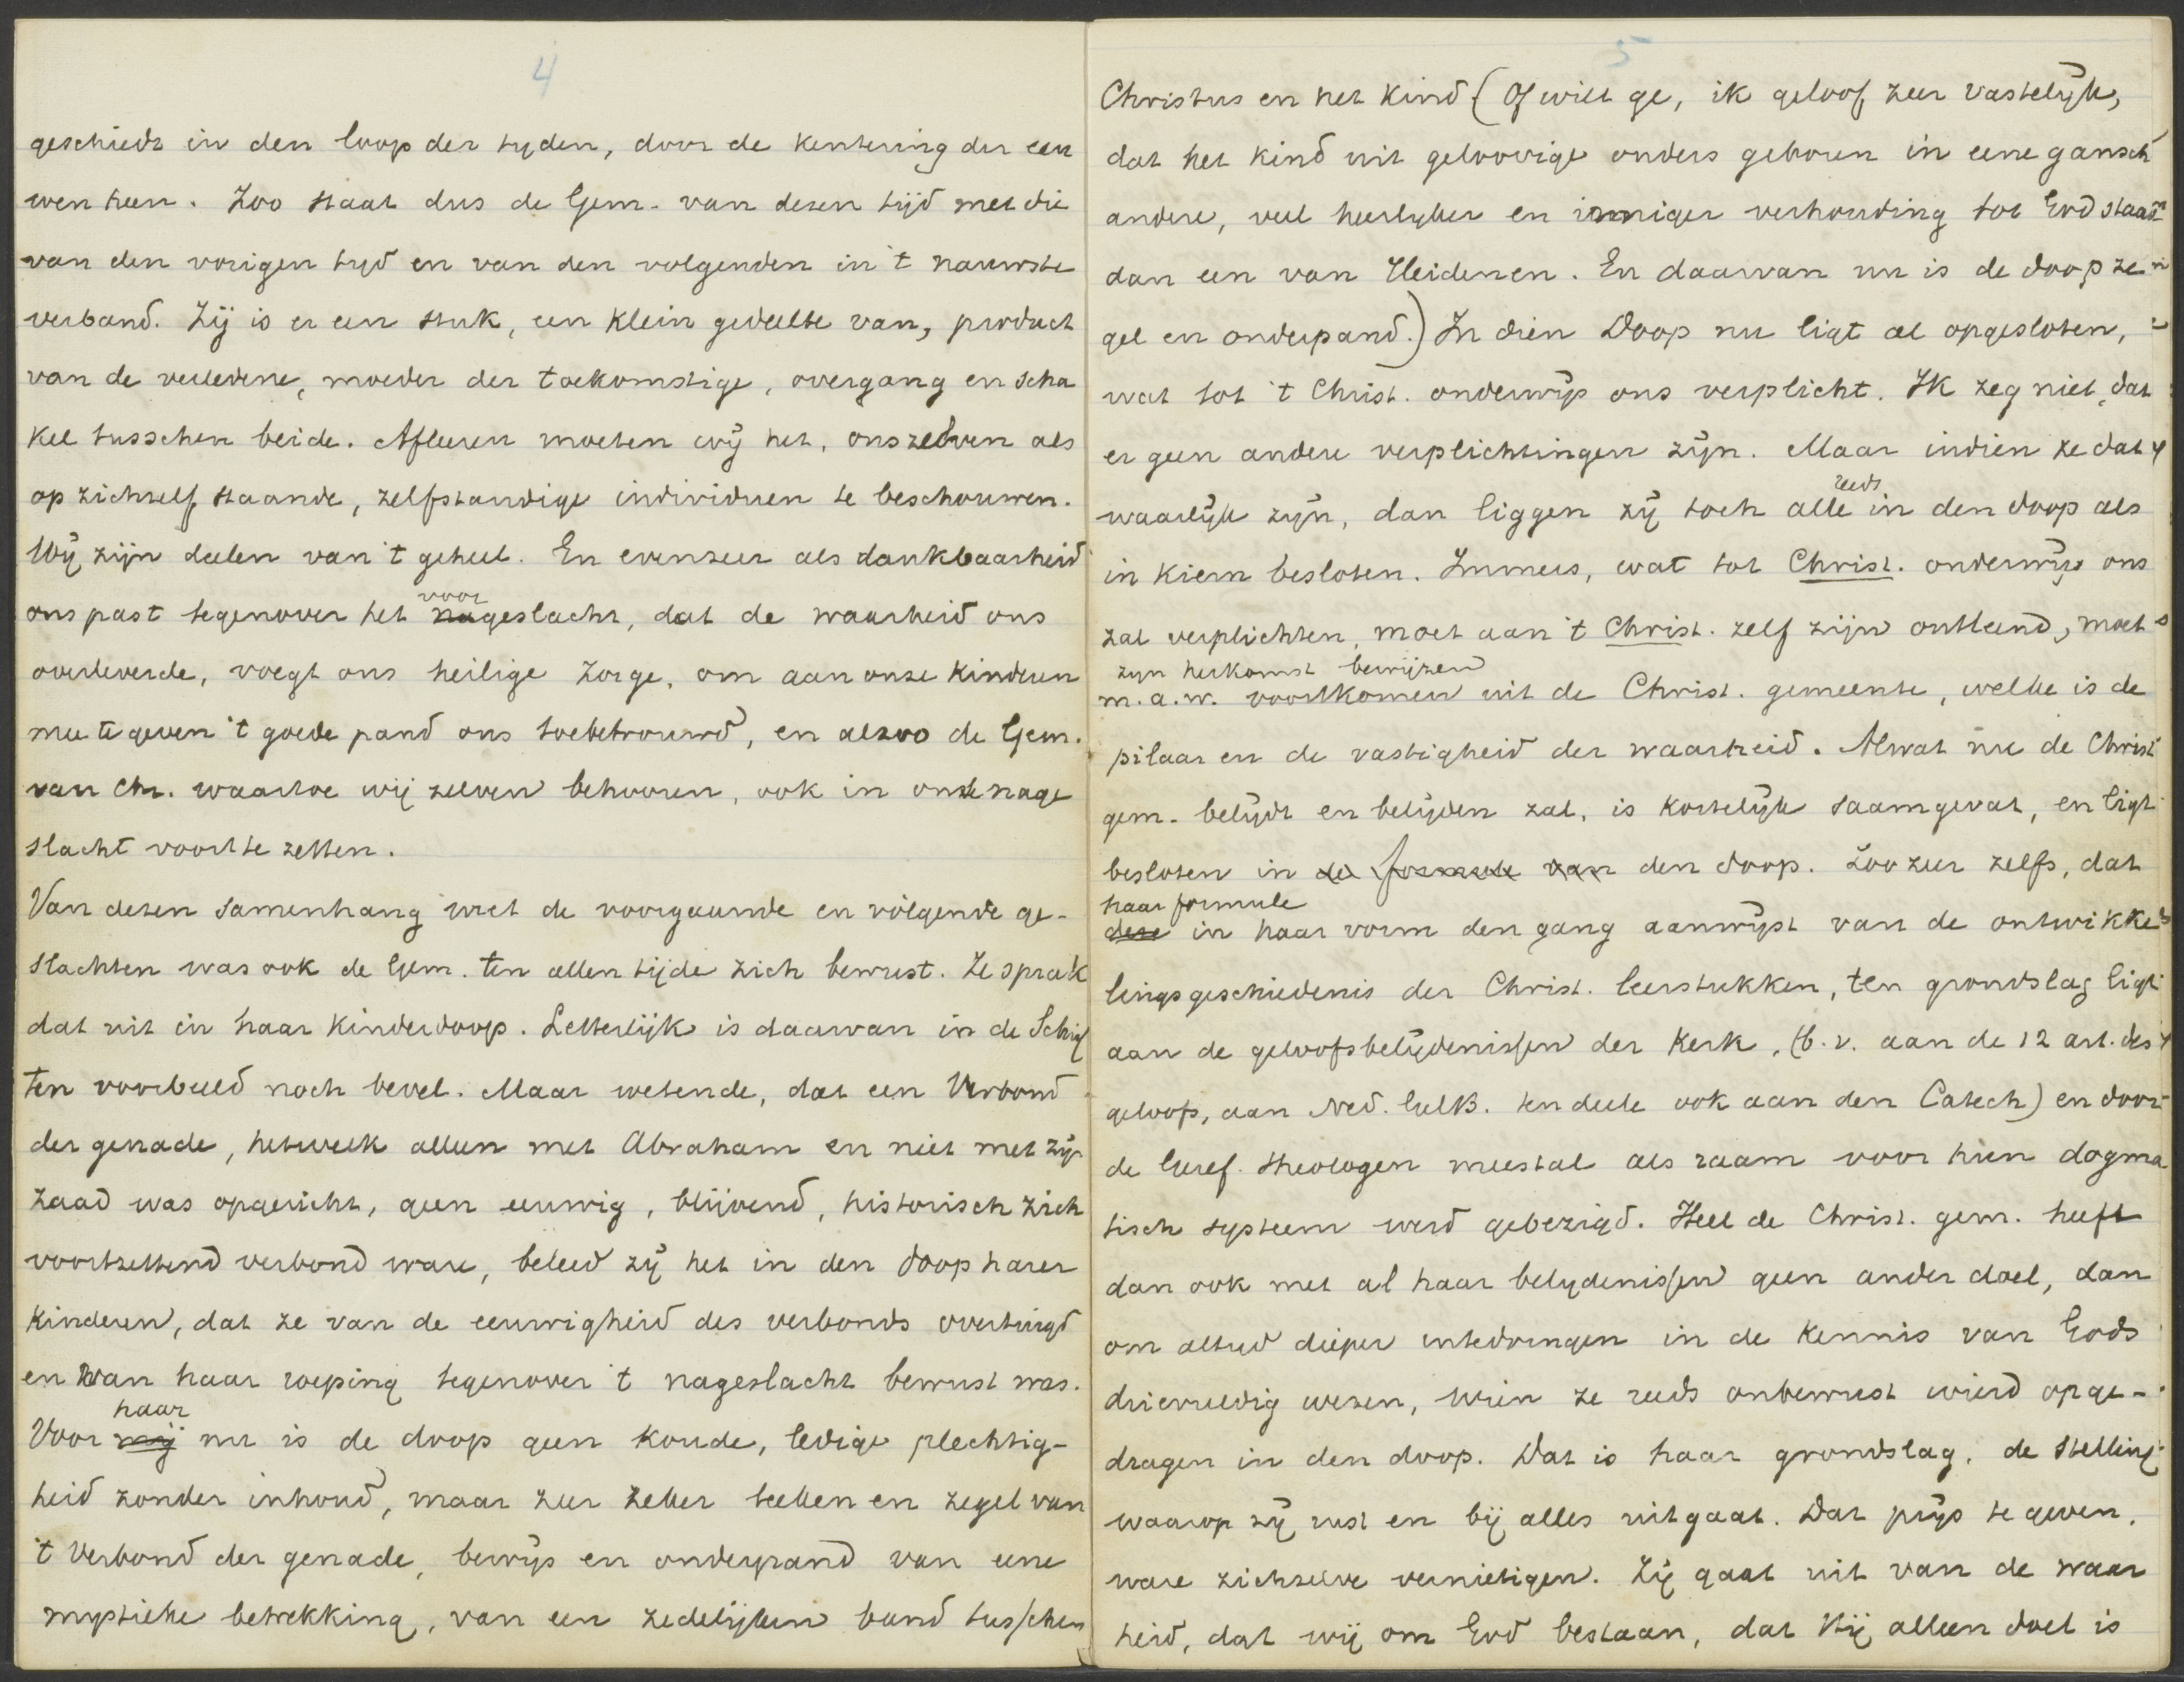 4
geschiedt in den loop der tyden, door de kentering der eeu
wen heen. Zoo staat dus de Gem. van dezen tijd met die
van den vorigen tyd en van den volgenden in 't nauwste
verband. Zij is er een stuk, een klein gedeelte van, product
van de verledene, moeder der toekomstige, overgang en scha
kel tusschen beide. Afleeren moeten wij het, onszelven als
op zichzelf staande, zelfstandige individuen te beschouwen.
Wij zijn deelen van 't geheel. En evenzeer als dankbaarheid
voor
ons past tegenover het nageslacht, dat de waarheid ons
overleverde, voegt ons heilige zorge, om aan onze kinderen
mee te geven 't goede pand ons toebetrouwd, en alzoo de Gem.
van Chr. waartoe wij zelven behooren, ook in onze nage
slacht voort te zetten.
Van dezen samenhang met de voorgaande en volgende ge-
slachten was ook de Gem. ten allen tijde zich bewust. Ze sprak
dat uit in haar Kinderdoop. Letterlijk is daarvan in de Schrif
ten voorbeeld noch bevel. Maar wetende, dat een Verbond
der genade, hetwelk alleen met Abraham en niet met zijn
zaad was opgericht, geen eeuwig, blijvend, historisch zich
voortzettend verbond ware, beleed zij het in den doop harer
kinderen, dat ze van de eeuwigheid des verbonds overtuigd
en van haar roeping tegenover 't nageslacht bewust was.
haar
Voor mij nu is de doop geen koude, ledige plechtig-
heid zonder inhoud, maar zeer zeker teeken en zegel van
't Verbond der genade, bewijs en onderpand van eene
mystieke betrekking, van een zedelijken band tusschen
5
Christus en het kind (Of wilt ge, ik geloof zeer vastelijk,
dat het kind uit geloovige ouders geboren in eene gansch
andere, veel heerlyker en inniger verhouding tot God staat
dan een van Heidenen. En daarvan nu is de doop ze
gel en onderpand.) In dien Doop nu ligt al opgesloten,
wat tot 't Christ. onderwijs ons verplicht. Ik zeg niet, dat
er geen andere verplichtingen zijn. Maar indien ze dat
reeds
waarlijk zijn, dan liggen zij toch alle in den doop als
in kiem besloten. Immers, wat tot Christ. onderwijs ons
zal verplichten, moet aan 't Christ. zelf zijn ontleend, moet
zyn herkomst bewijzen
m.a.w. voortkomen uit de Christ. gemeente, welke is de
pilaar en de vastigheid der waarheid. Alwat nu de Christ
gem. belijdt en belijden zal, is kortelijk saamgevat, en ligt
besloten in de formule van den doop. Zoozeer zelfs, dat
haar formule
deze in haar vorm den gang aanwijst van de ontwikke
lingsgeschiedenis der Christ. leerstukken, ten grondslag ligt
aan de geloofsbelijdenissen der Kerk, (b.v. aan de 12 art. des
geloofs, aan Ned. GelB. ten deele ook aan den Catech) en door
de Geref. theologen meestal als raam voor hun dogma
tisch systeem werd gebezigd. Heel de Christ. gem. heeft
dan ook met al haar belydenissen geen ander doel, dan
om altyd dieper intedringen in de kennis van Gods
drievuldig wezen, wien ze reeds onbewust wierd opge-
dragen in den doop. Dat is haar grondslag, de stelling
waarop zij rust en bij alles uitgaat. Dat prijs te geven,
ware zichzelve vernietigen. Zij gaat uit van de waar
heid, dat wij om God bestaan, dat Hij alleen doel is